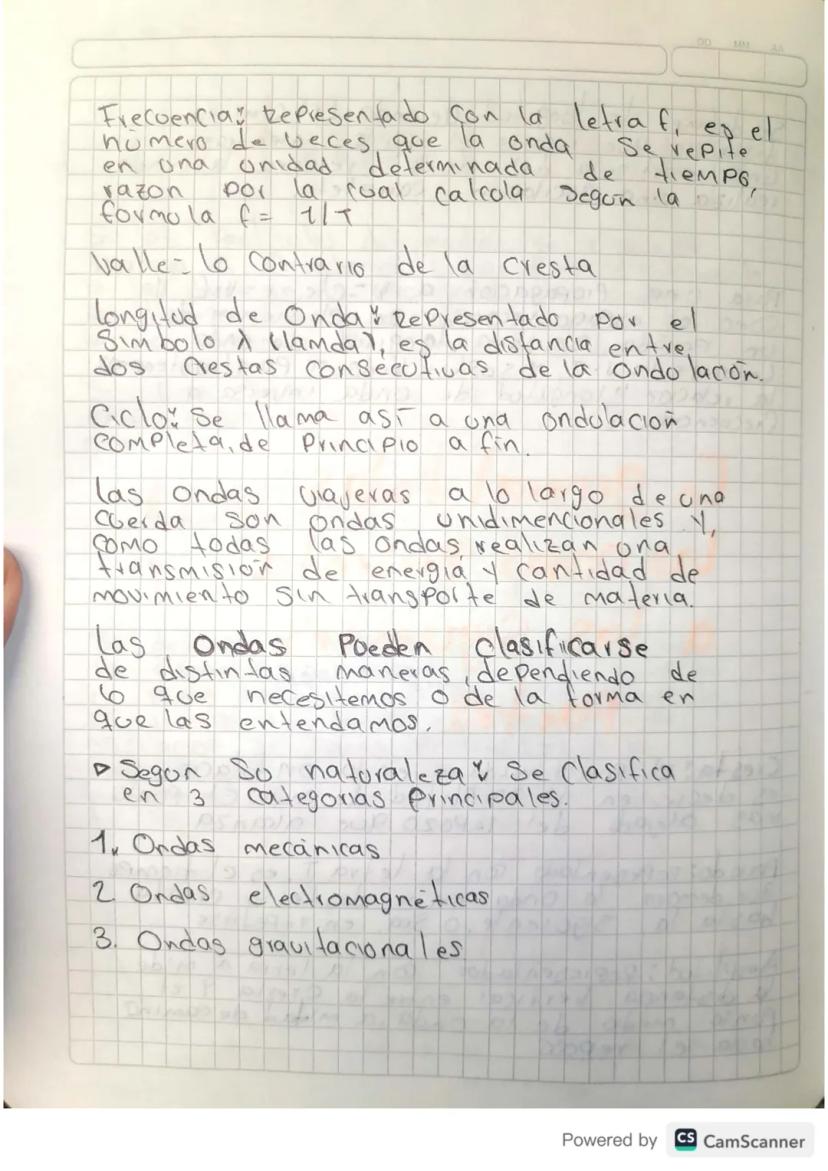 DD MM AA
Frecuencia: representado con la letra f, es el
número de veces que la onda se repite
en una unidad determinada de tiempo,
razon por la cual calcula segun la
formula f = 1/T
Valle = lo contrario de la cresta
Longitud de Onda: Representado por el
Simbolo λ (lamda), es la distancia entre
dos crestas consecutivas de la ondulación.
Ciclo: Se llama así a una ondulación
completa, de principio a fin.
Las ondas viajeras a lo largo de una
cuerda son ondas unidimencionales y,
como todas las ondas, realizan una
transmisión de energía y cantidad de
movimiento sin transporte de materia.
Las Ondas Pueden clasificarse
de distintas maneras, dependiendo de
lo que necesitemos o de la forma en
que las entendamos.
▷ Segun Su naturaleza: Se Clasifica
en 3 categorias principales.
1. Ondas mecánicas
2 Ondas electromagnéticas
3. Ondas gravitacionales
Powered by CS CamScanner